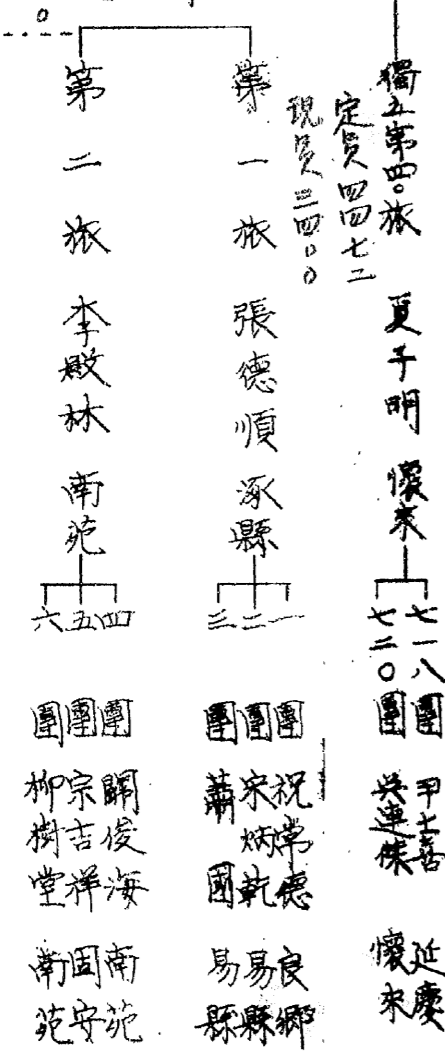 獨立第四〇旅 夏子明 懷來
定員四四七二
現員三四〇〇
七一八團 甲士善 延慶
七二〇團 吳連傑 懷來
第一旅 張德順 涿縣
一團 祝常德 良鄉
二團 宋炳乾 易縣
三團 蕭國 易縣
第二旅 李殿林 南苑
四團 關俊海 南苑
五團 宗吉祥 固安
六團 柳樹堂 南苑